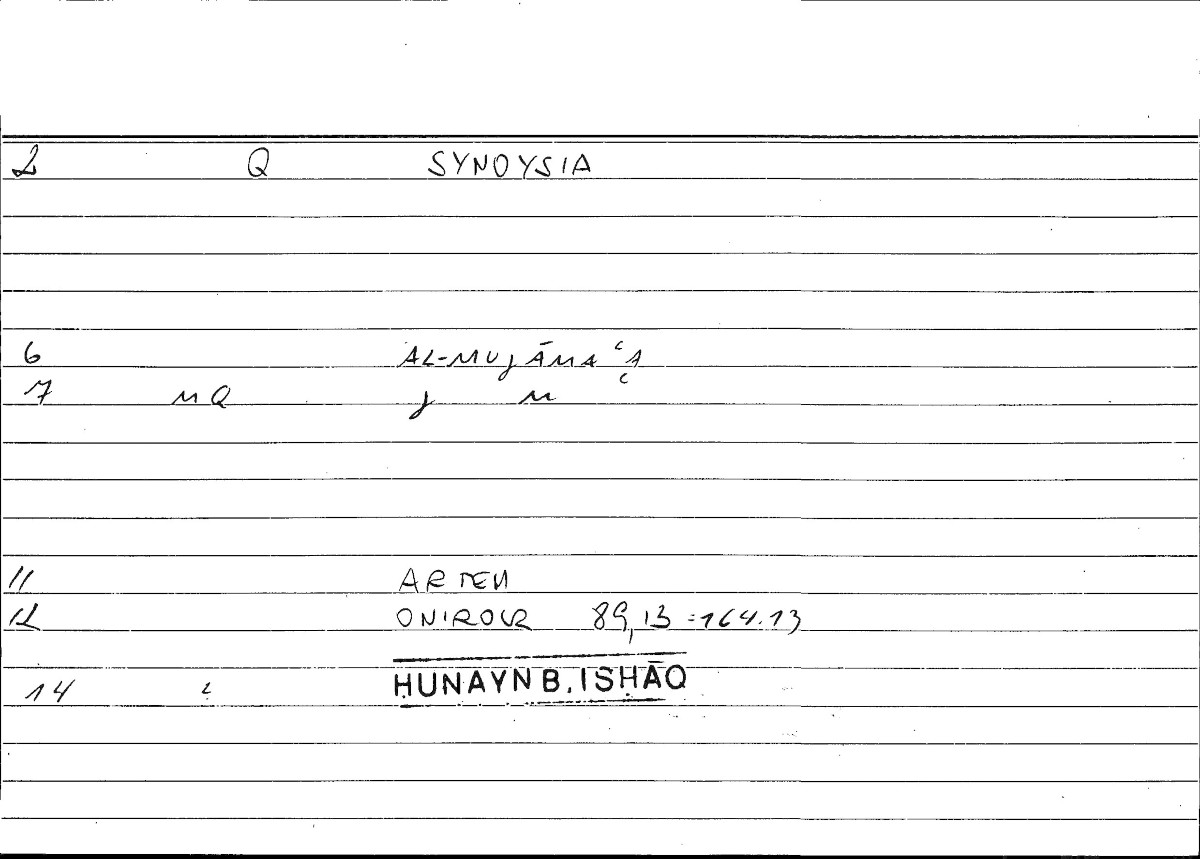 2 Q SYNOYSIA
6 AL-MUJĀMAʿA
7 MQ J M ʿ
11 ARTEM
12 ONIROCR 89,13=164.13
14 HUNAYN B. ISḤĀQ